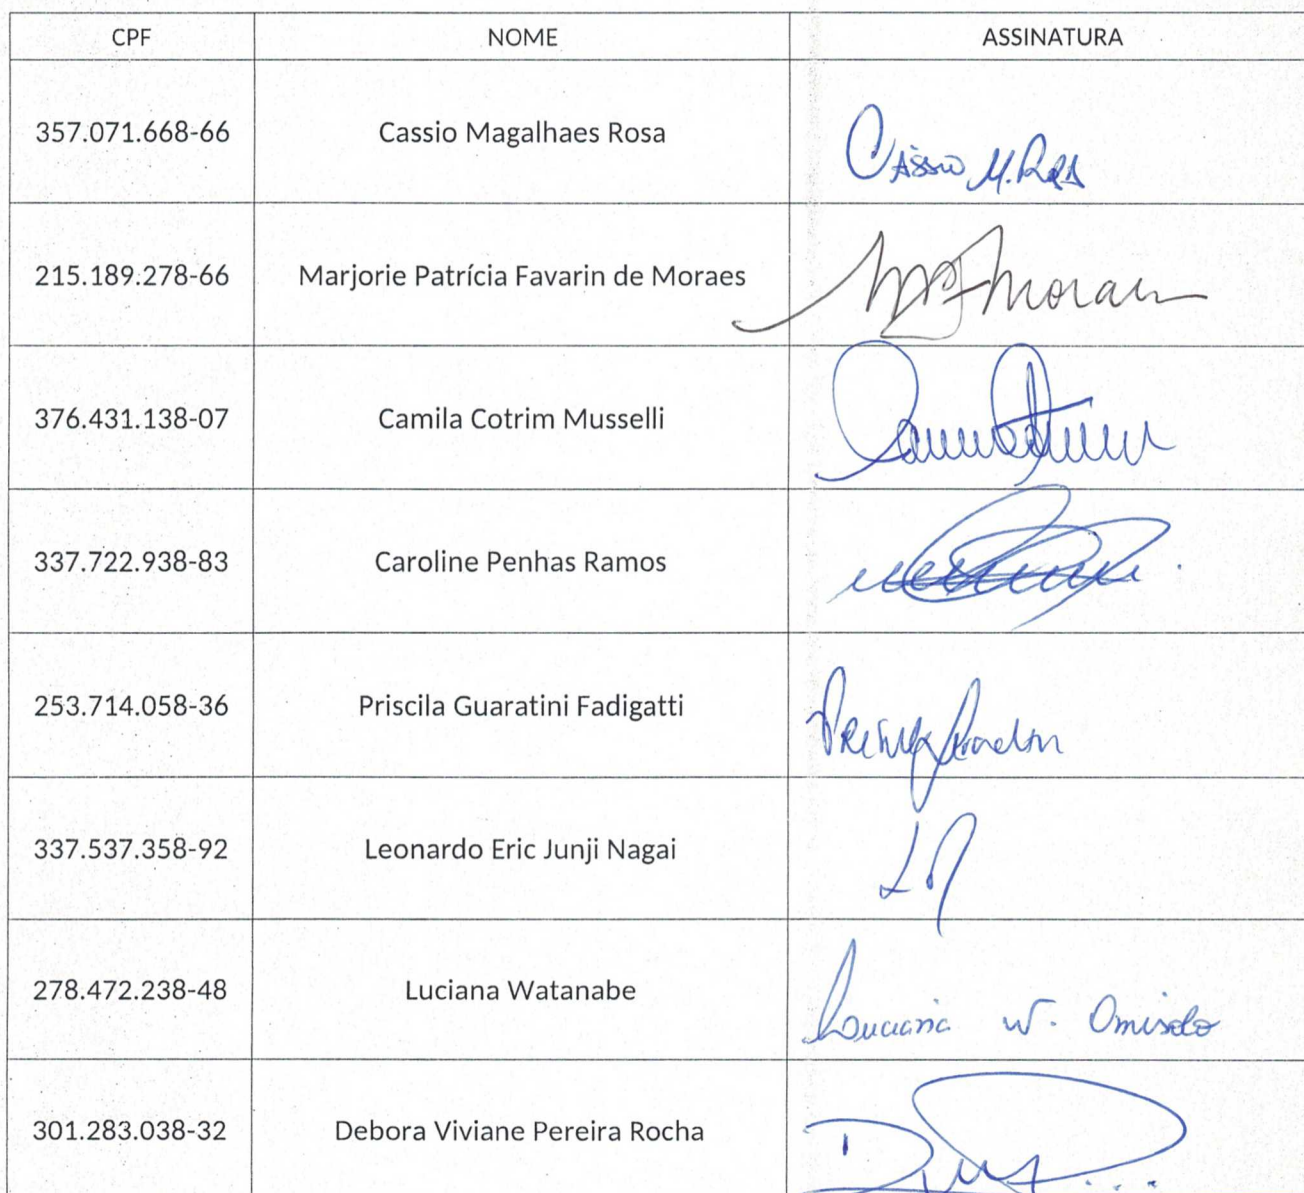 CPF NOME ASSINATURA
357.071.668-66 Cassio Magalhaes Rosa Cássio M. Rosa
215.189.278-66 Marjorie Patrícia Favarin de Moraes Moraes
376.431.138-07 Camila Cotrim Musselli
337.722.938-83 Caroline Penhas Ramos
253.714.058-36 Priscila Guaratini Fadigatti
337.537.358-92 Leonardo Eric Junji Nagai
278.472.238-48 Luciana Watanabe Luciana W.
301.283.038-32 Debora Viviane Pereira Rocha